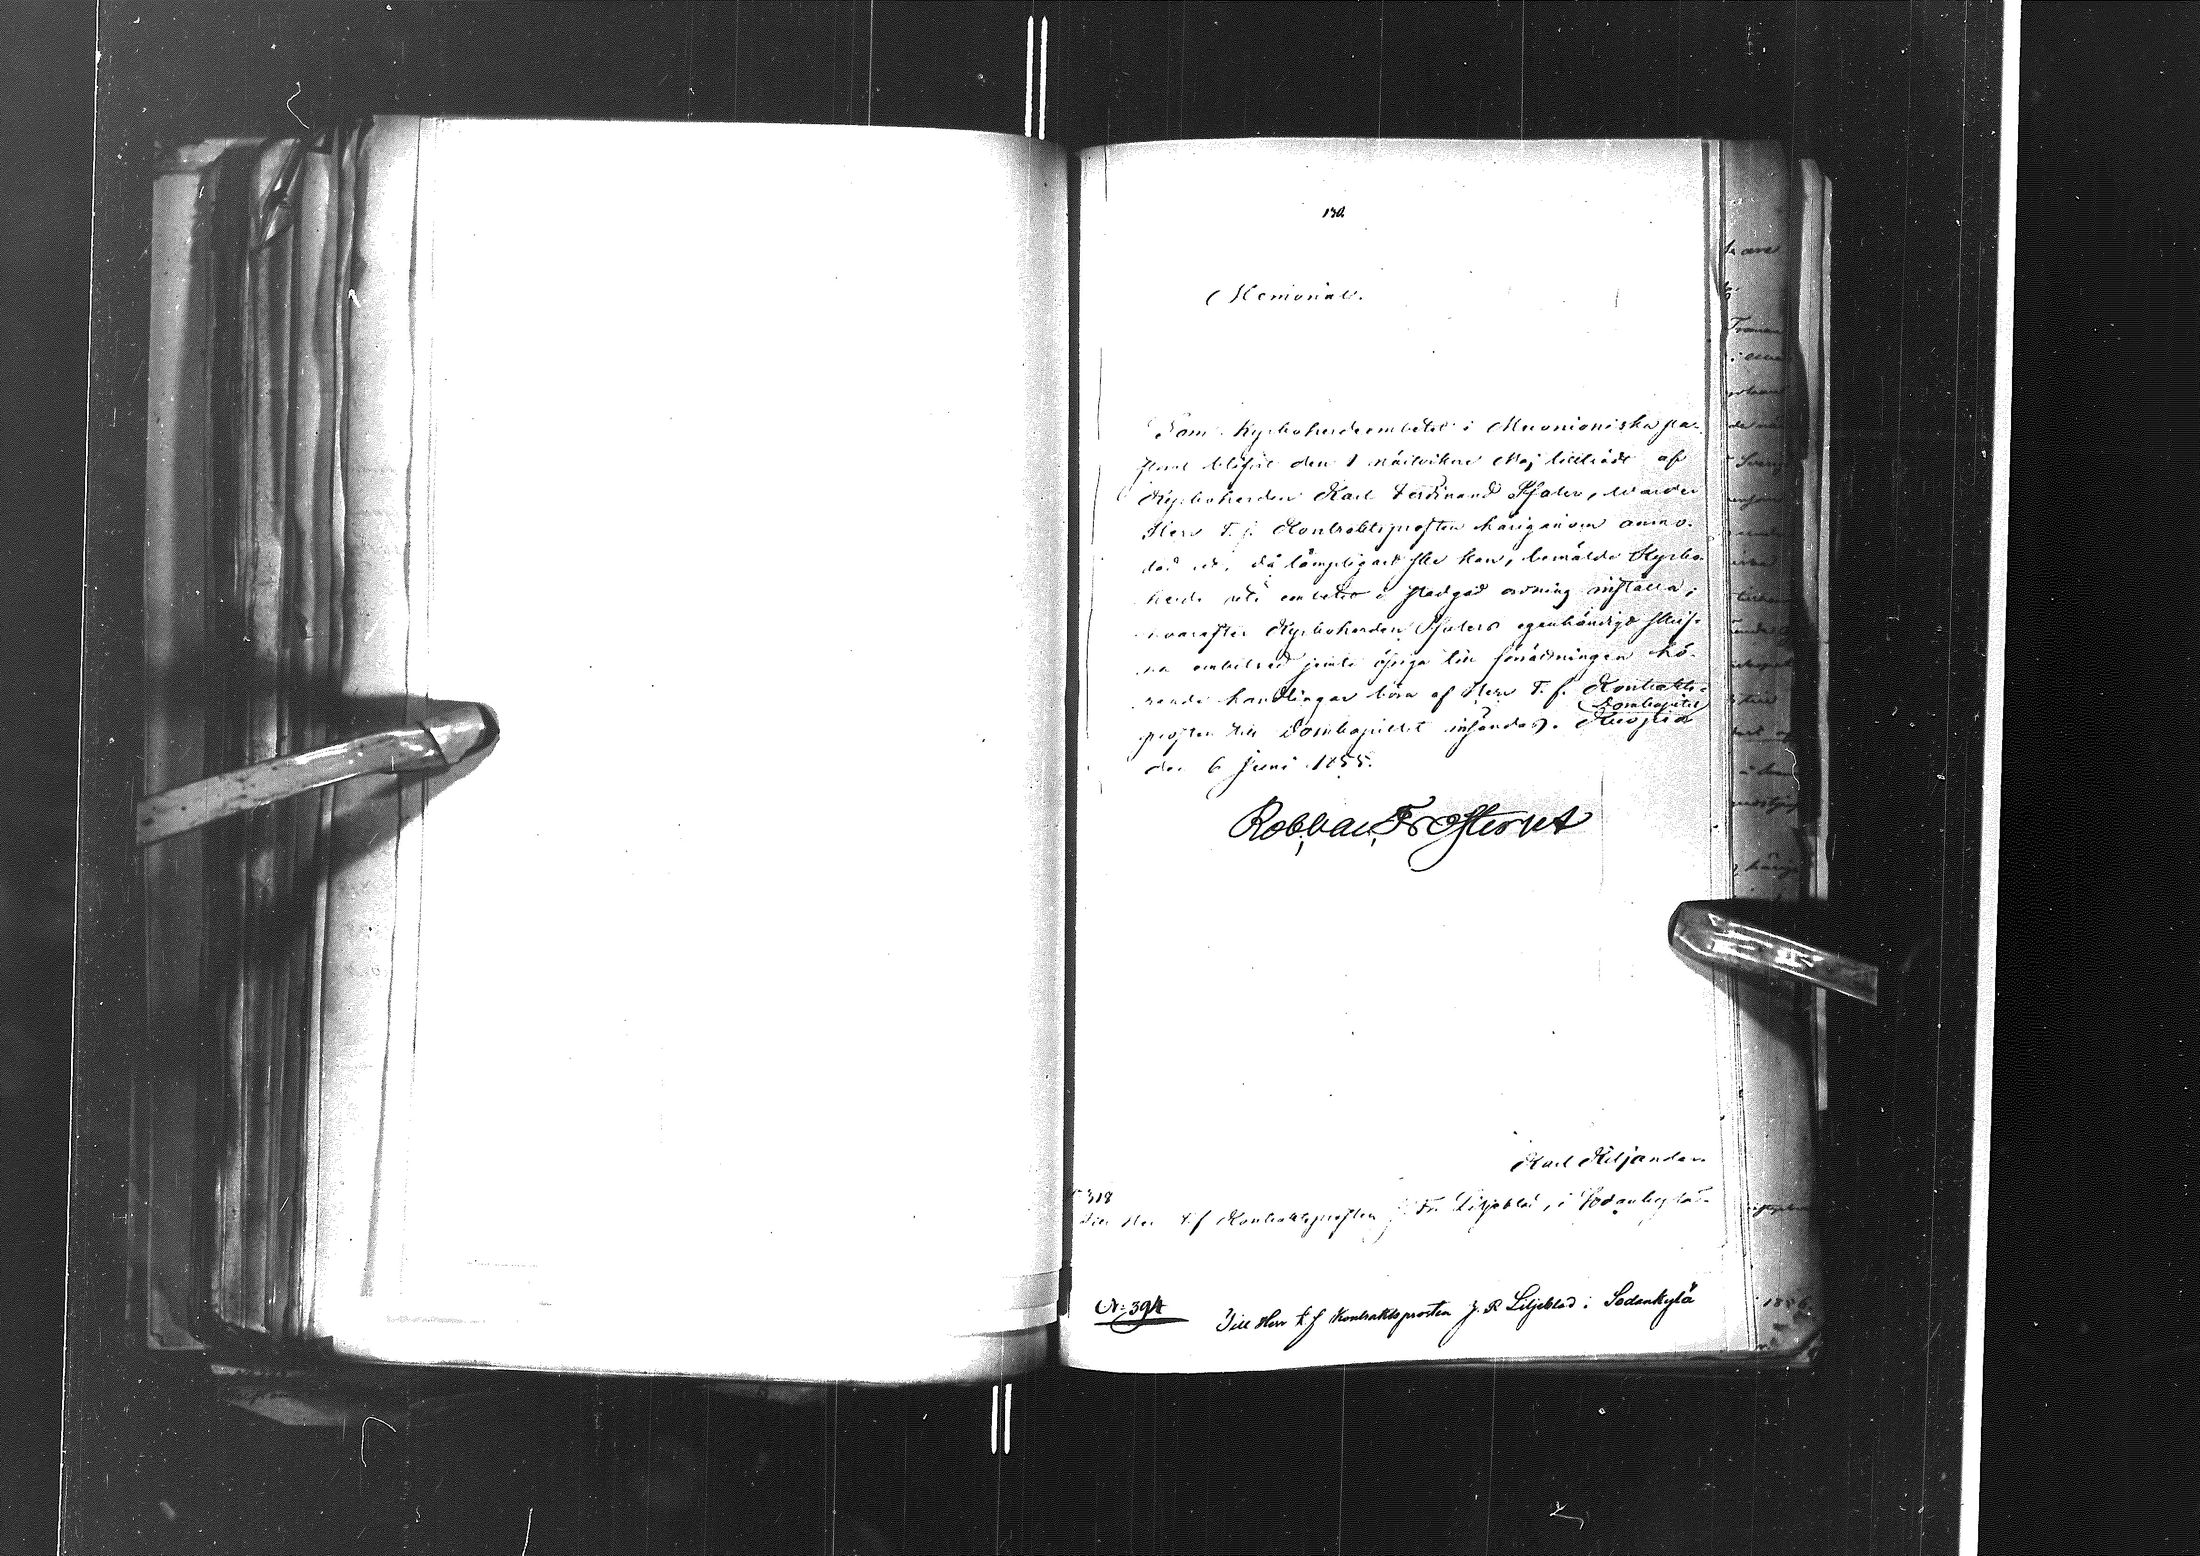 130.
Memorial.
Som Kyrkoherdeembetet i Muonioniska pa-
storat blifvit den 1 näстvikne Maj tillträdt af
Kyrkoherden Karl Ferdinand Pfaler, warder
Herr T. f. Kontraktsprosten härigenom anmo-
dad att, då lämpligast ske kan, bemälde Kyrko-
herde uti embetet i stadgad ordning installa;
hvarefter Kyrkoherden Pfalers egenhändigt skrif-
na embetsed jemte öfriga till förrättningen hö-
rande handlingar böra af Herr T. f. Kontrakts-
(Domkapitlet)
prosten till Domkapitlet insändas. Kuopio
den 6 Juni 1855.
Robert Frosterus
Karl Kiljander
N° 318
Till Herr T. f. Kontraktsprosten J. Fr. Liljeblad, i Sodankylä
N: 394 Till Herr t. f. Kontraktsprosten J. F. Liljeblad i Sodankylä